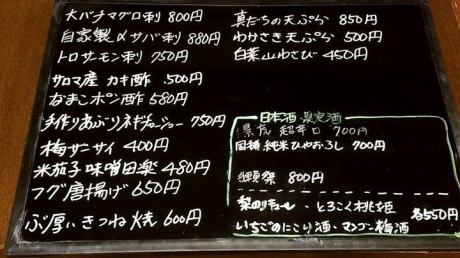 大バチマグロ刺 800円
自家製〆サバ刺 880円
トロサーモン刺 750円
サロマ産 カキ酢 500円
なまこポン酢 580円
手作りあぶりネギチャーシュー 750円
梅サニサイ 400円
米茄子味噌田楽 480円
フグ唐揚げ 650円
ぶ厚いきつね焼 600円
真だちの天ぷら 850円
わかさぎ天ぷら 500円
白菜山わさび 450円
日本酒・果実酒
超辛口 700円
国稀 純米ひやおろし 700円
獺祭 800円
梨のリキュール・とろこく桃姫
各550円
いちごのにごり酒・マンゴー梅酒